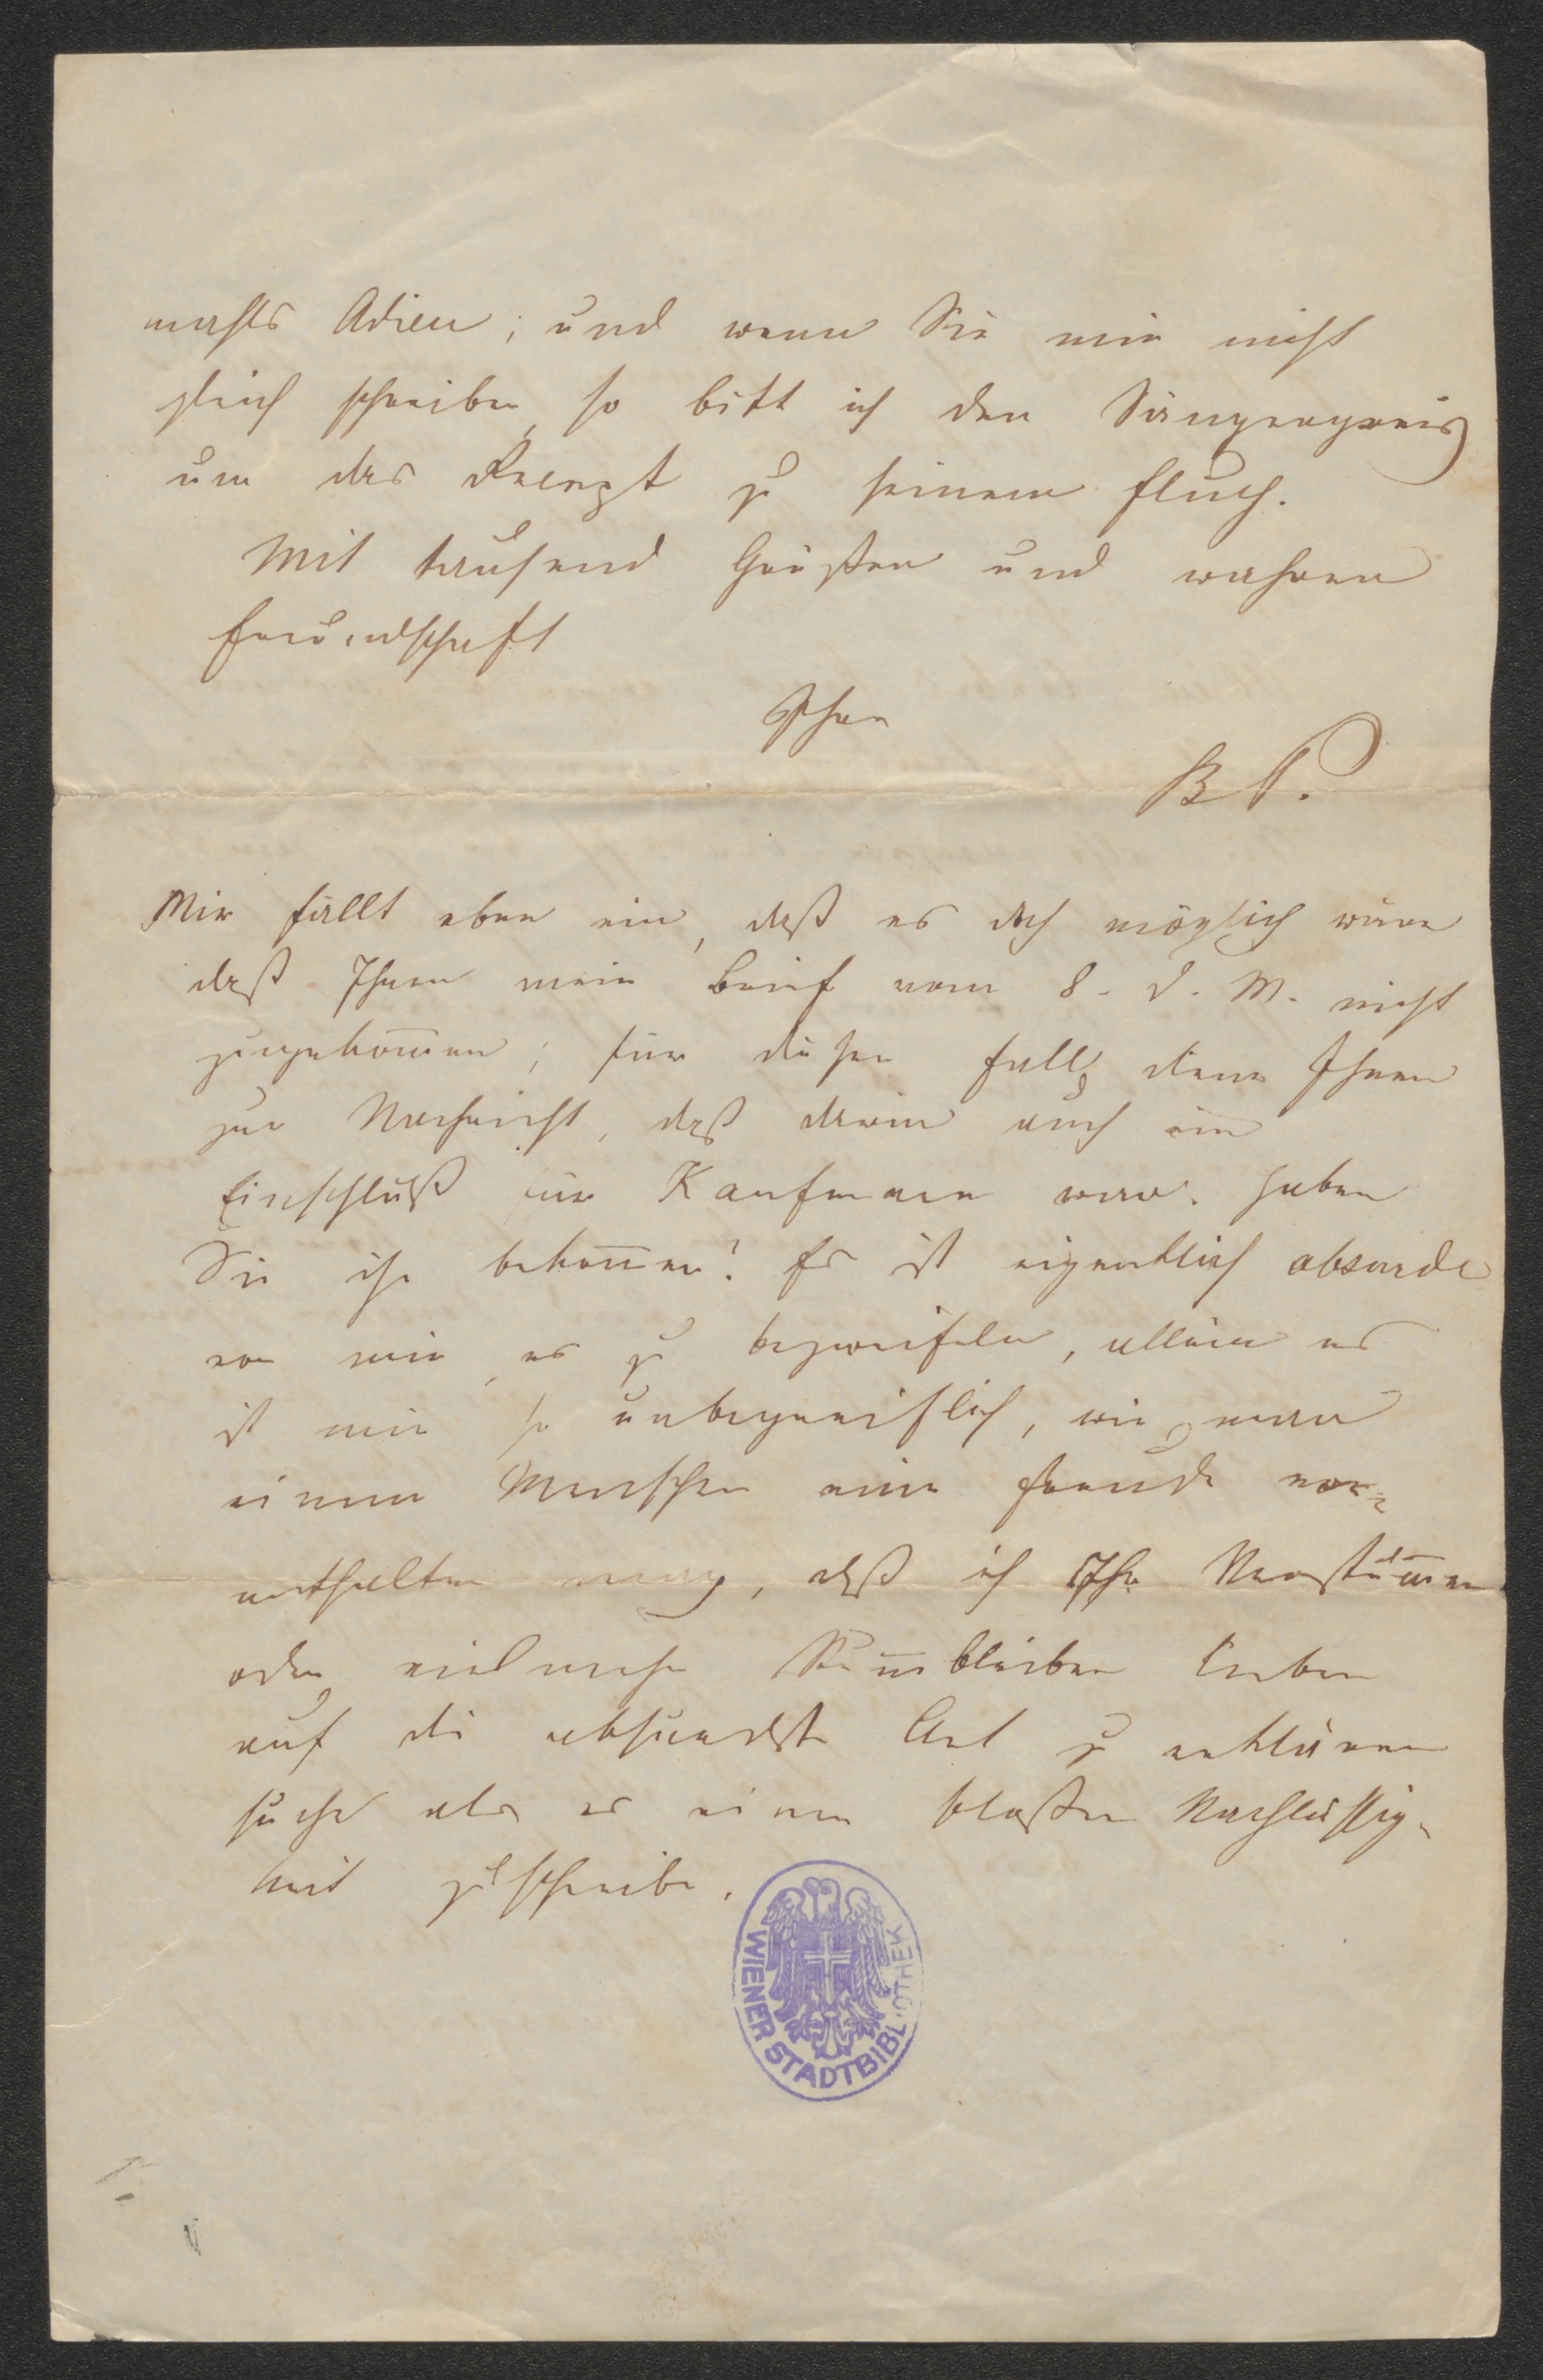 mahls Adieu; und wenn Sie mir nicht
gleich schreiben, so bitt ich den Sängergreis
um das Recept zu seinem Fluch.
Mit tausend Grüßen und wahrer
Freundschaft
Ihr
B P.
Mir fällt eben ein, daß es doch möglich wäre
daß Ihnen mein Brief vom 8. d. M. nicht
zugekom̅en; für diesen Fall diene Ihnen
zur Nachricht, daß darin auch ein
Einschluß für Kaufmann war. Haben
Sie ihn bekom̅en? Es ist eigentlich absurde
von mir, es zu bezweifeln, allein es
ist mir so unbegreiflich, wie man
einem Menschen eine Freude vor=
enthalten mag, daß ich Ihr Verstum̅en
oder vielmehr Stum̅bleiben lieber
auf die absurdste Art zu erklären
suche als es einer bloßen Nachlässig-
keit zuschreibe.
WIENER STADTBIBLIOTHEK